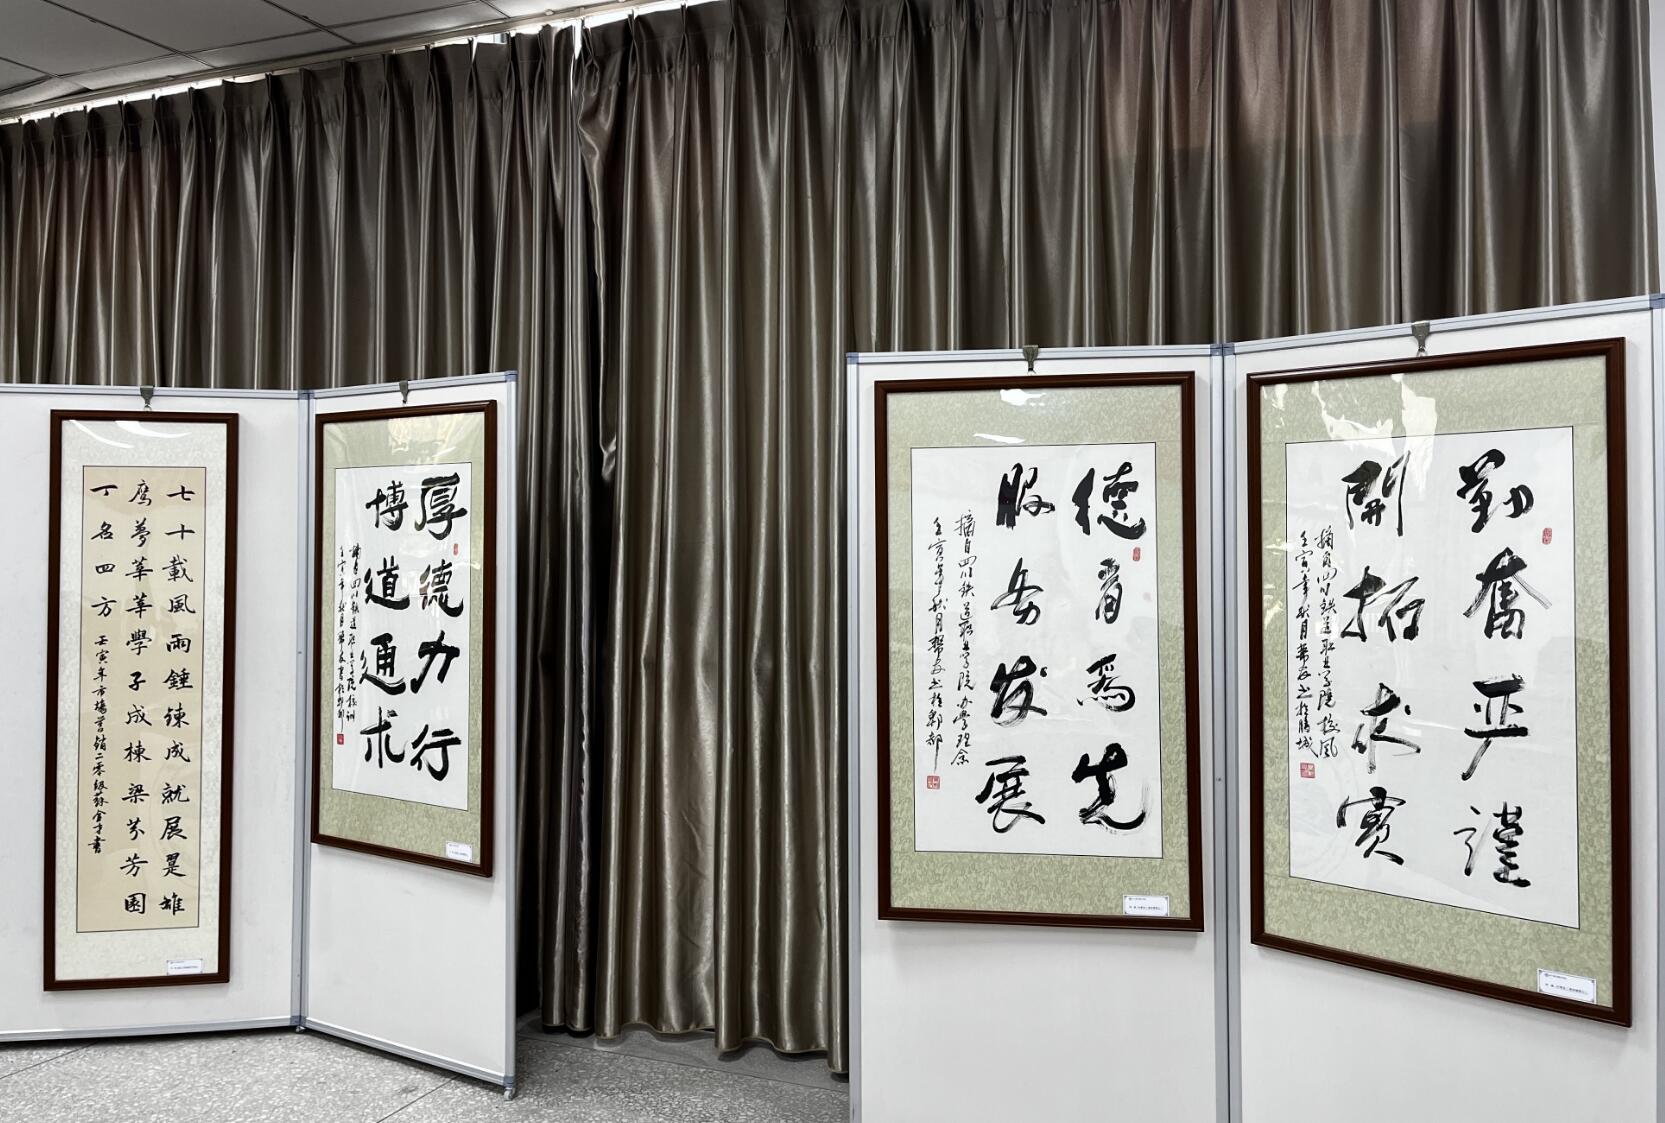 七十載風雨錘鍊成就展翼雄
鹰夢莘莘學子成棟梁芬芳園
丁名四方
壬寅年市場營銷二零級蘇金才書
厚德力行
博道通术
摘自四川鉄道职业学院校训
壬寅年秋月
德育爲先
服务发展
摘自四川鉄道职业学院办学理念
壬寅年秋月 书於郫都
勤奮严謹
開拓求實
摘自四川鉄道职业学院校风
壬寅年秋月 书於